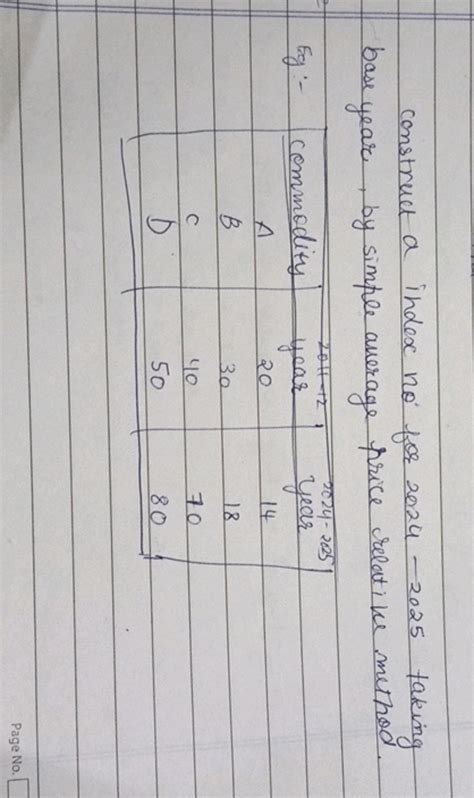 construct a index no for 2024 - 2025 taking
base year, by simple average price relative method.
Eg :-
commodity 2011-12 year 2024-2025 year
A 20 14
B 30 18
C 40 70
D 50 80
Page No.